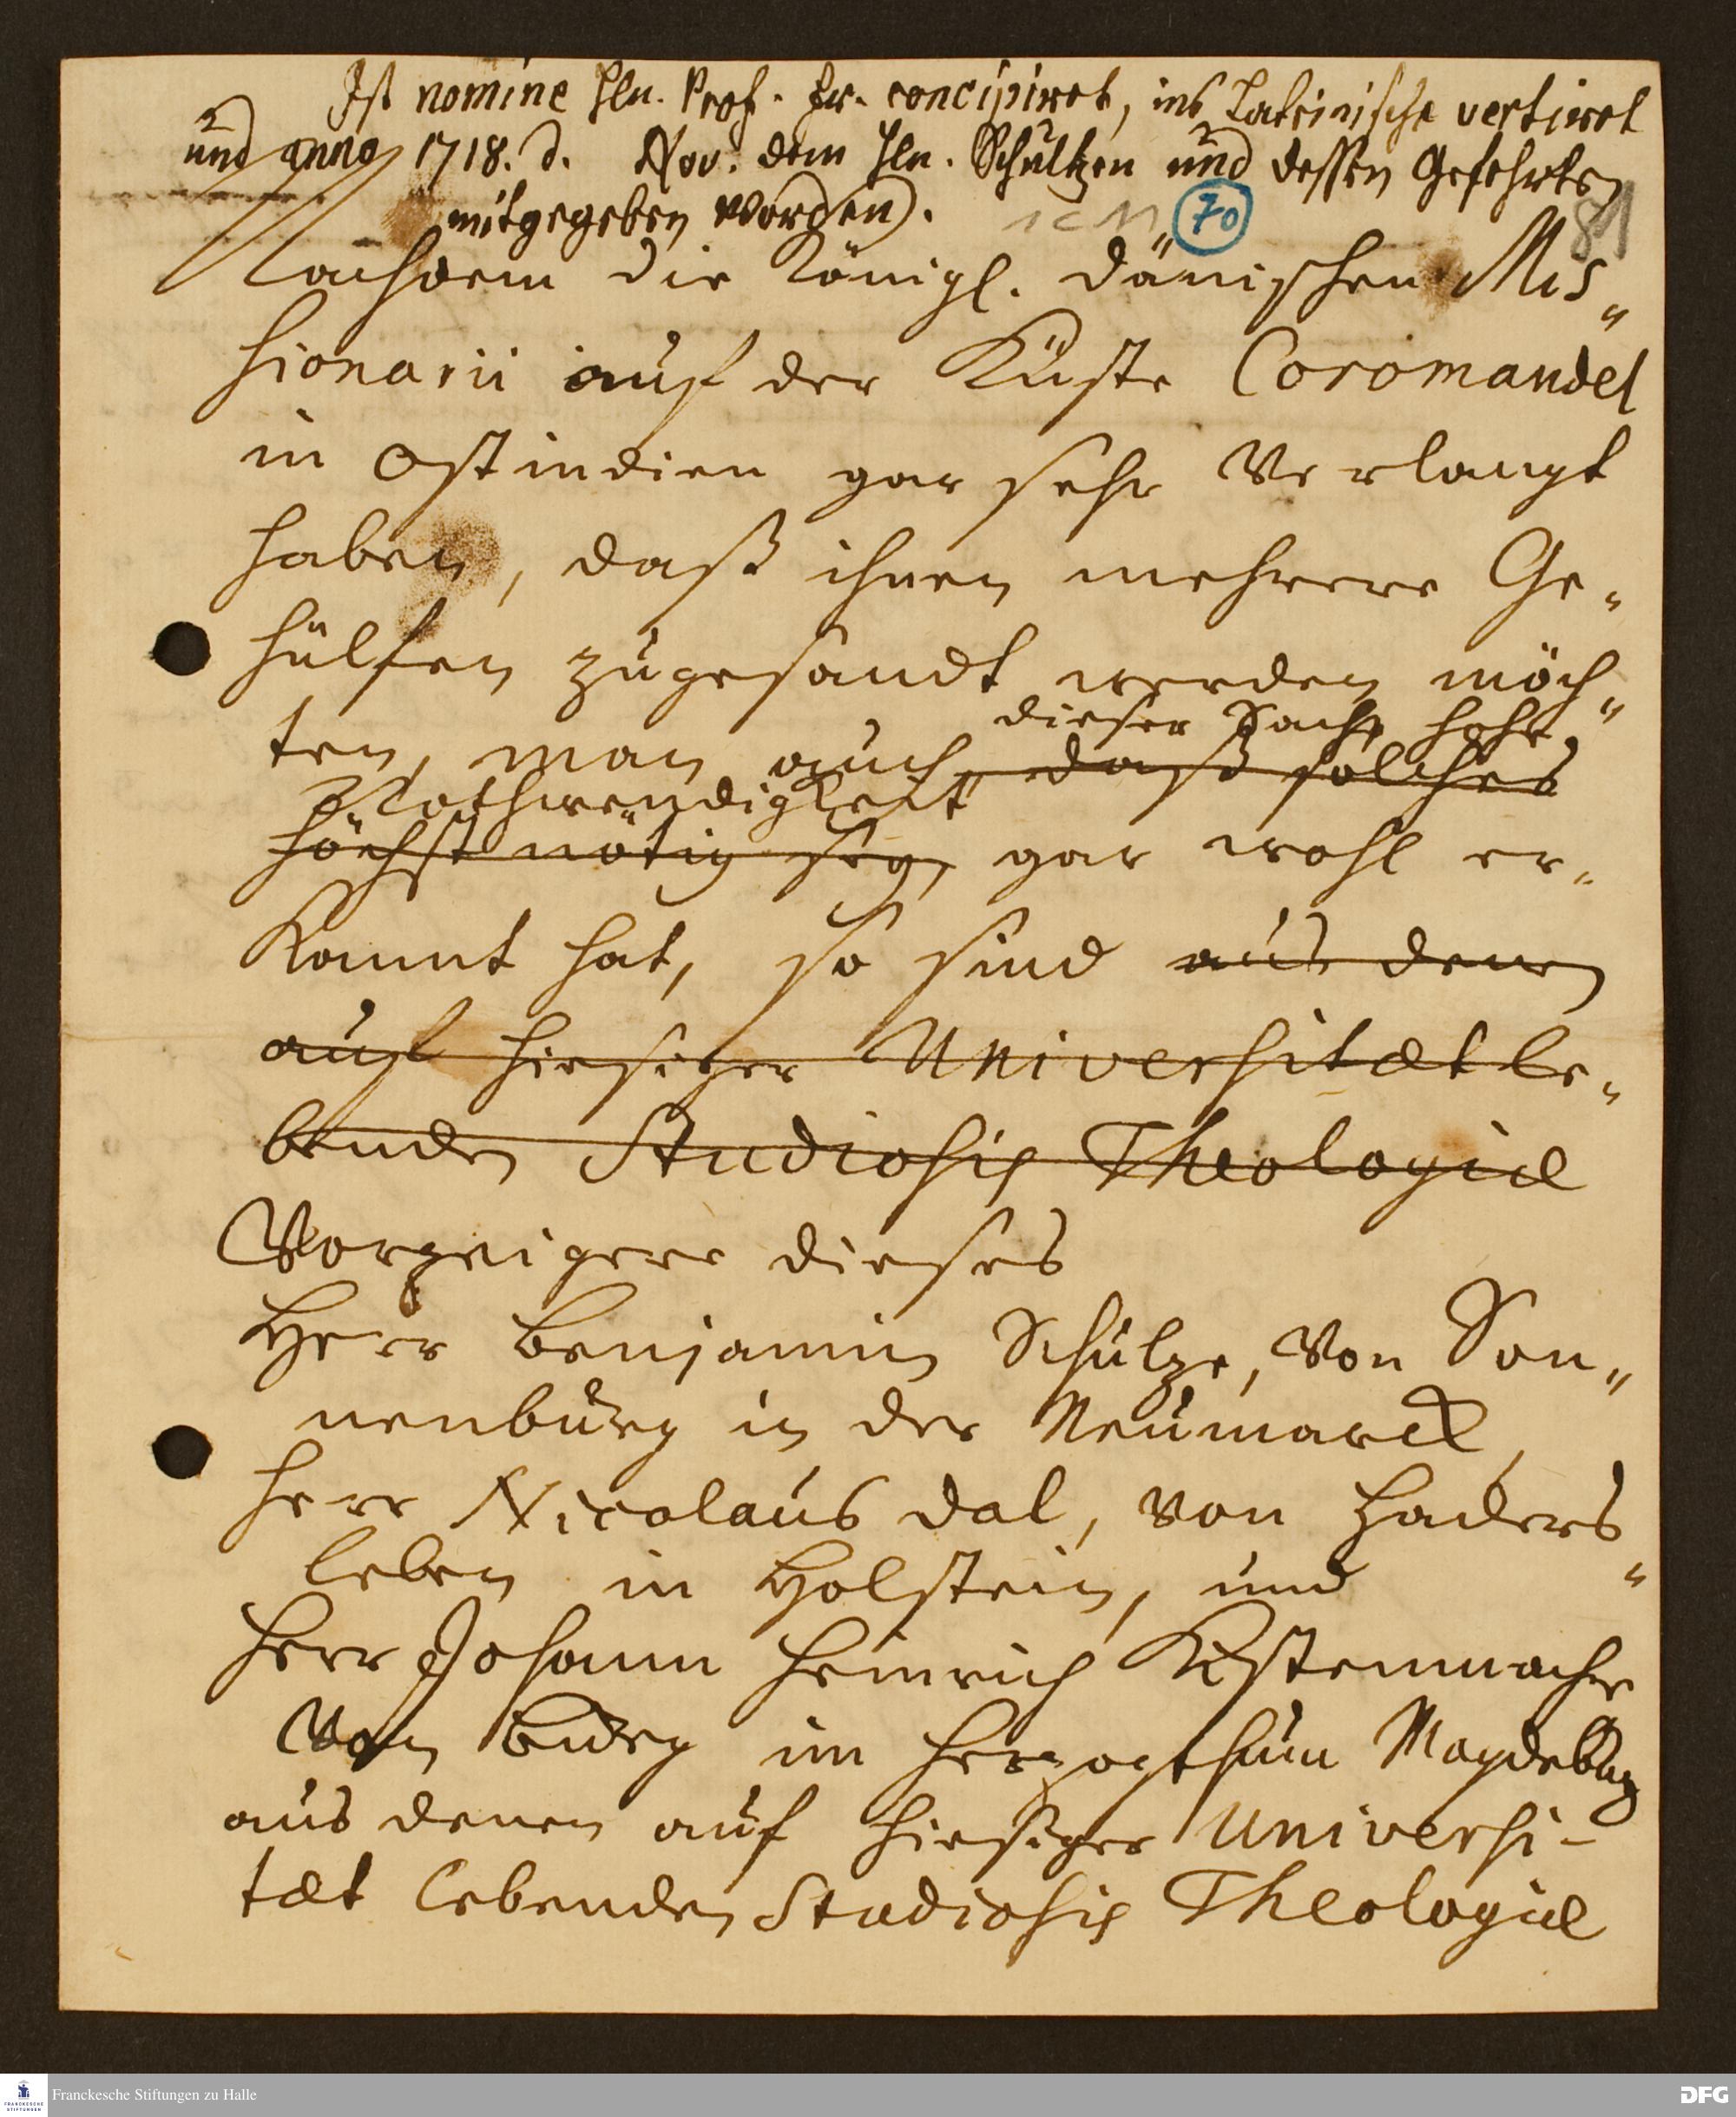 Ist nomine Hln. Prof. Fr. concipiret, ins Lateinische vertiret
und anno 1718. d. Nov. dem Hln. Schultzen und dessen Gefehrten
mitgegeben worden.
1 C 11 70 81
Nachdem die Königl. Dänischen Mis„
sionarii auf der Küste Coromandel
in Ostindien gar sehr verlangt
haben, daß ihnen mehrere Ge„
hülfen zugesandt werden möch„
dieser Sache hohe
ten, man auch, daß solches
Nothwendigkeit
höchst nötig sey, gar wohl er„
kannt hat, so sind aus denen
auf hiesiger Universitæt le„
benden Studiosis Theologiæ
Vorzeigere dieses
Herr Benjamin Schulze, von Son„
nenburg in der Neumarck,
Herr Nicolaus Dal, von Haders„
leben in Holstein, und
Herr Johann Heinrich Kistenmacher
von Burg im Herzogthum Magdeburg
aus denen auf hiesiger Universi-
tæt lebenden Studiosis Theologiæ
Franckesche Stiftungen zu Halle
FRANCKESCHE STIFTUNGEN
DFG